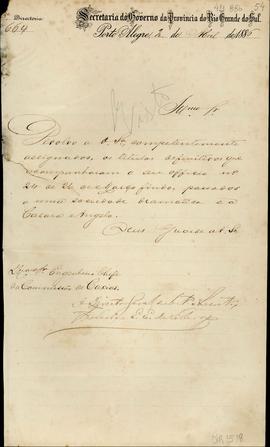 44 886 54
Secretaria do Governo da Provincia do Rio Grande do Sul.
Directoria
664
Porto Alegre, 2 de Abril de 1886
Visto
Illmo Sr.
Devolvo a V. Sa competentemente
assignados, os titulos definitivos que
acompanharam o seu officio no
24 de 26 de Março findo, passados
a uma sociedade dramatica e a
Cazara Angelo.
Deus Guarde a V. Sa
Engenheiro Chefe
da Commissão de Caxias.